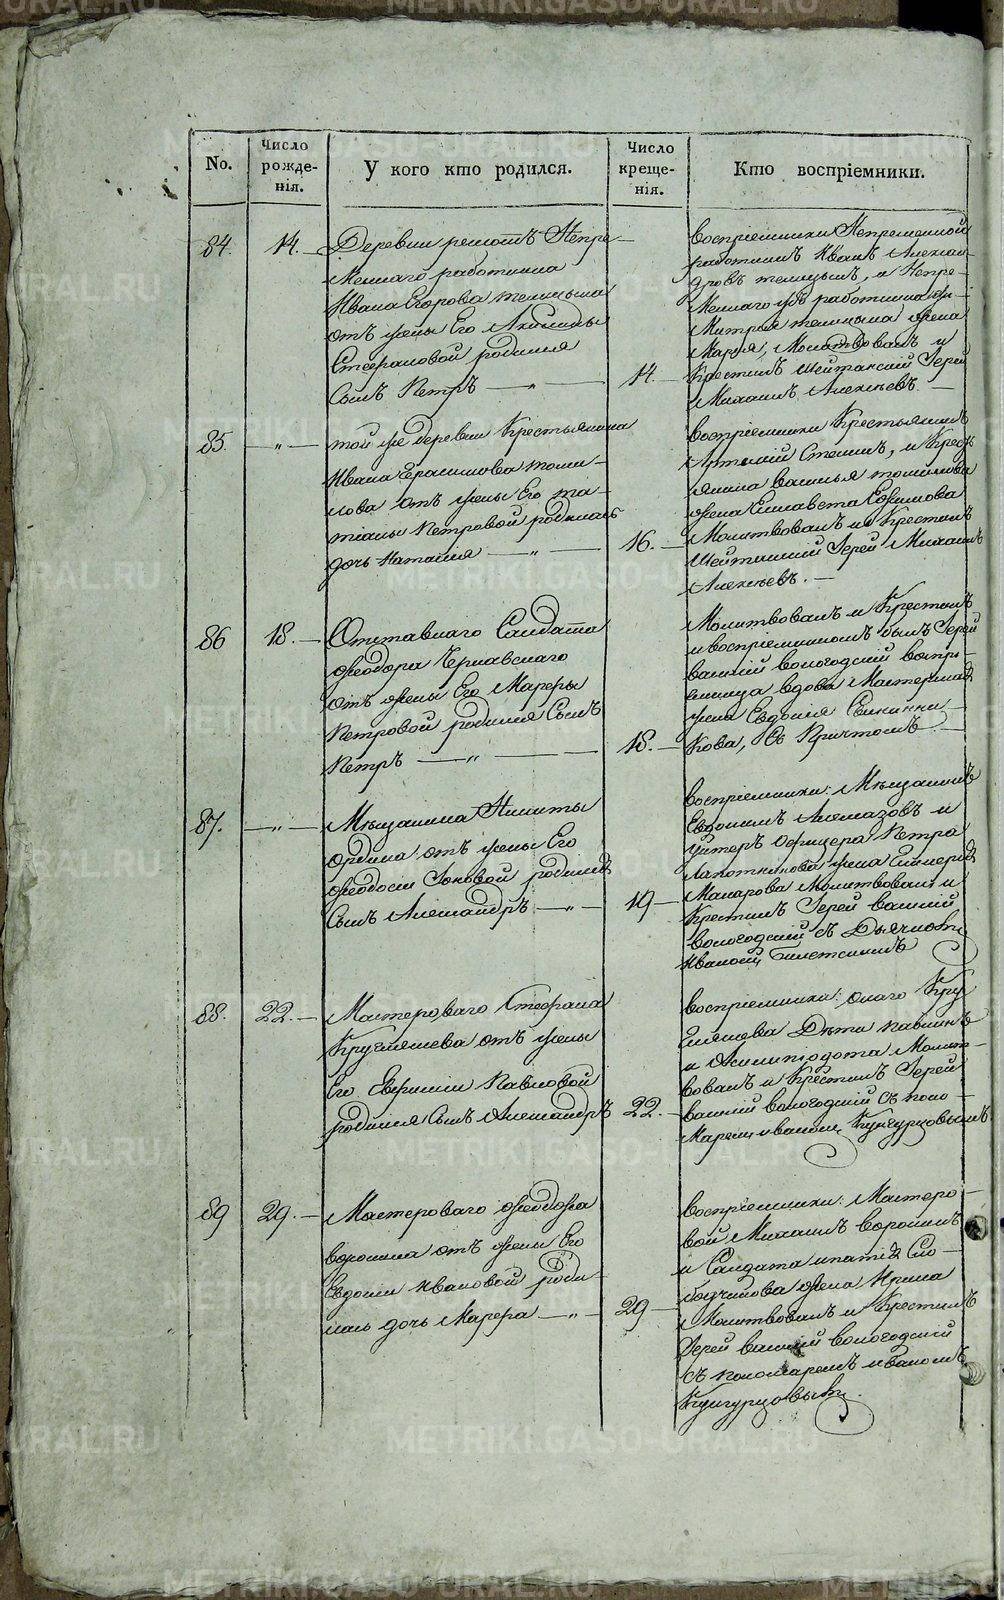 No.
Число рожде-нія.
У кого кто родился.
Число креще-нія.
Кто воспріемники.
84.
14.
Деревни Непре-
меннаго работника
Ивана Егорова
отъ жены Его Акилины
Стефановой родился
Сынъ Петръ
14.
воспріемники Непременной
работникъ Иванъ Алексан-
дровъ и Непре-
меннаго работника Ди-
митрія жена
Марья, Молитвовалъ и
Крестилъ Шейтанскій Іерей
Михаилъ Алексѣевъ.
85.
"
той же деревни Крестьянина
Ивана Герасимова
отъ жены Его Та-
тіаны Петровой родилась
дочь Наталія
16.
воспріемники Крестьянинъ
Артемій и Крест
янина Василья
жена Елисавета Ефимова
Молитвовалъ и Крестилъ
Шейтанскій Іерей Михаилъ
Алексѣевъ.
86
18.
Отставнаго Салдата
Феодора Чернавскаго
отъ жены Его Марфы
Петровой родился Сынъ
Петръ
18.
Молитвовалъ и Крестилъ
и воспріемникомъ былъ Іерей
Василій Вологодскій воспрі-
емница вдова Мастерска
жена Евдокія
кова, Съ Причтомъ
87.
"
Мѣщанина Никиты
Ордина отъ жены Его
Феодосіи родился
Сынъ Александръ
19
воспріемники: Мѣщанинъ
Евдокимъ Алмазовъ и
Унтеръ Офицера Петра
Лапотникова жена Гликерія
Макарова Молитвовалъ и
Крестилъ Іерей Василій
Вологодскій съ Дьячкомъ
Иваномъ
88.
22.
Мастероваго Стефана
Кругляшева отъ жены
Его Евфиміи Павловой
родился Сынъ Александръ
22.
воспріемники: онаго Кру
гляшева Дѣти
и Молит-
вовалъ и Крестилъ Іерей
Василій Вологодскій съ поно-
маремъ Иваномъ Кунгурцовымъ
89
29.
Мастероваго Феодора
Воронина отъ жены Его
Евдокіи Ивановой роди-
лась дочь Марфа
29
воспріемники: Мастеро-
вой Михаилъ Воронинъ
и Салдата Ипатія Сло-
бодчикова жена Ирина
Молитвовалъ и Крестилъ
Іерей Василій Вологодскій
съ пономаремъ Иваномъ
Кунгурцовымъ.
METRIKI.GASO-URAL.RU